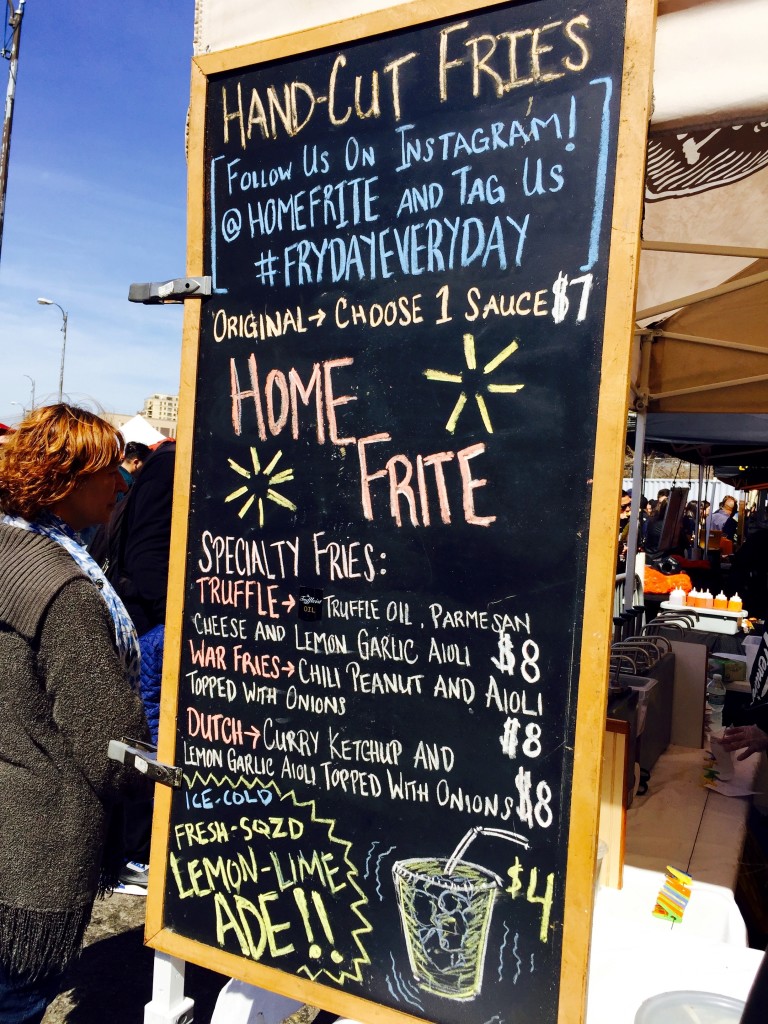 HAND-CUT FRIES
FOLLOW US ON INSTAGRAM!
@HOMEFRITE AND TAG US
#FRYDAYEVERYDAY
ORIGINAL→ CHOOSE 1 SAUCE $7
HOME
FRITE
SPECIALTY FRIES:
TRUFFLE→ OIL TRUFFLE OIL, PARMESAN
CHEESE AND LEMON GARLIC AIOLI $8
WAR FRIES→ CHILI PEANUT AND AIOLI
TOPPED WITH ONIONS $8
DUTCH→ CURRY KETCHUP AND
LEMON GARLIC AIOLI TOPPED WITH ONIONS $8
ICE-COLD
FRESH-SQZD
LEMON-LIME
ADE!!
$4